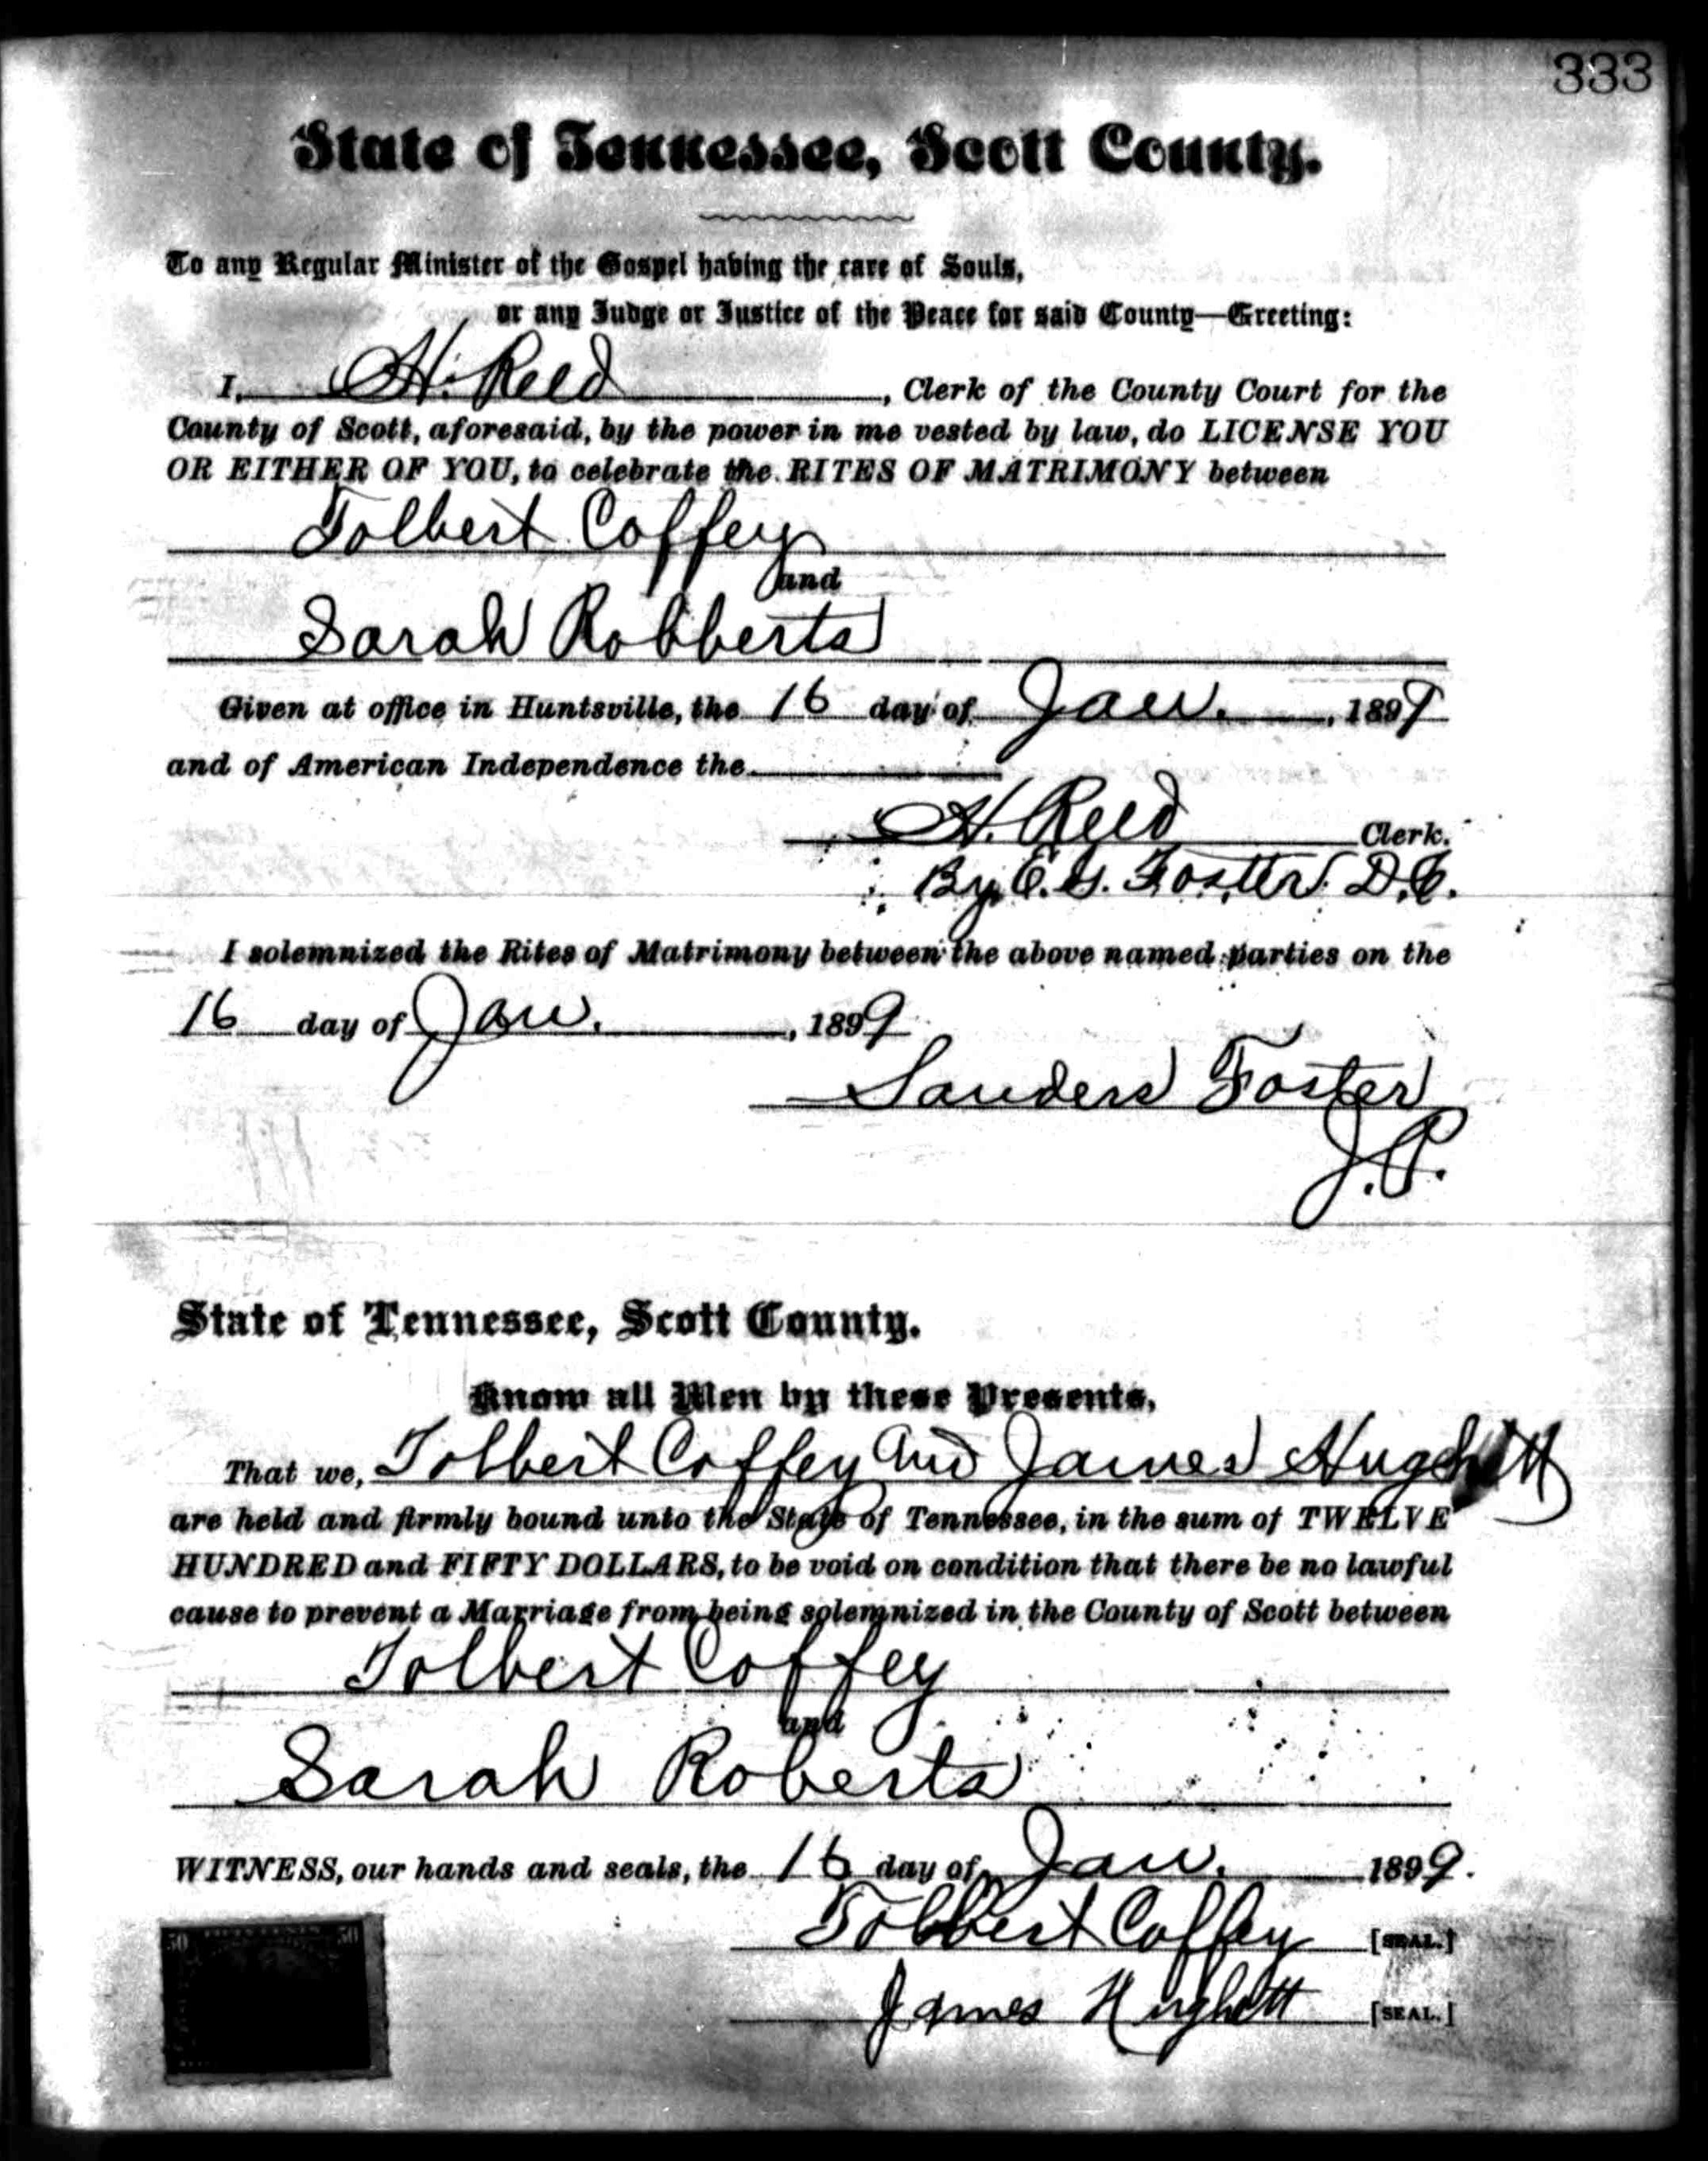 333
State of Tennessee, Scott County.
To any Regular Minister of the Gospel having the care of Souls,
or any Judge or Justice of the Peace for said County—Greeting:
I, H. Reed, Clerk of the County Court for the
County of Scott, aforesaid, by the power in me vested by law, do LICENSE YOU
OR EITHER OF YOU, to celebrate the RITES OF MATRIMONY between
Tolbert Coffey
and
Sarah Robberts
Given at office in Huntsville, the 16 day of Jan. , 1899
and of American Independence the
H. Reed Clerk.
By E. G. Foster D.C.
I solemnized the Rites of Matrimony between the above named parties on the
16 day of Jan. , 1899
Sanders Foster
J.P.
State of Tennessee, Scott County.
Know all Men by these Presents,
That we, Tolbert Coffey and James Hughett
are held and firmly bound unto the State of Tennessee, in the sum of TWELVE
HUNDRED and FIFTY DOLLARS, to be void on condition that there be no lawful
cause to prevent a Marriage from being solemnized in the County of Scott between
Tolbert Coffey
and
Sarah Roberts
WITNESS, our hands and seals, the 16 day of Jan. 1899.
Tolbert Coffey [SEAL.]
James Hughett [SEAL.]
50 50